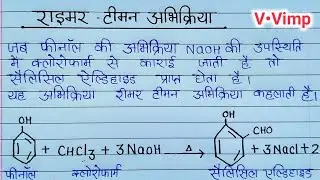 V•Vimp
राइमर-टीमन अभिक्रिया
जब फीनॉल की अभिक्रिया NaOH की उपस्थिति
में क्लोरोफार्म से कराई जाती है तो
सैलिसिल ऐल्डिहाइड प्राप्त होता है।
यह अभिक्रिया रीमर टीमन अभिक्रिया कहलाती है।
OH + CHCl3 + 3NaOH Δ OH CHO + 3NaCl + 2
फीनॉल क्लोरोफार्म सैलिसिल ऐल्डिहाइड